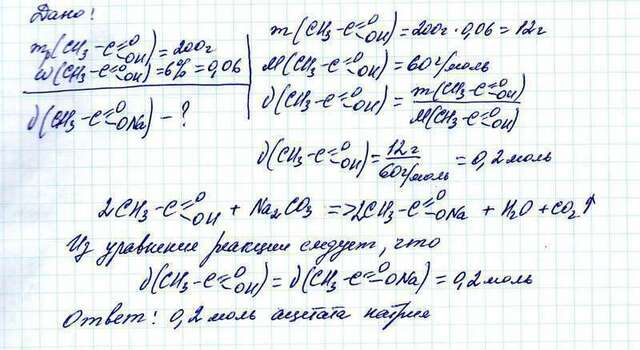 Дано:
m(CH₃-C=O-OH) = 200г
ω(CH₃-C=O-OH) = 6% = 0,06
ν(CH₃-C=O-ONa) - ?
m(CH₃-C=O-OH) = 200г · 0,06 = 12г
M(CH₃-C=O-OH) = 60г/моль
ν(CH₃-C=O-OH) = m(CH₃-C=O-OH) / M(CH₃-C=O-OH)
ν(CH₃-C=O-OH) = 12г / 60г/моль = 0,2 моль
2CH₃-C=O-OH + Na₂CO₃ => 2CH₃-C=O-ONa + H₂O + CO₂↑
Из уравнение реакции следует, что
ν(CH₃-C=O-OH) = ν(CH₃-C=O-ONa) = 0,2 моль
Ответ: 0,2 моль ацетата натрия